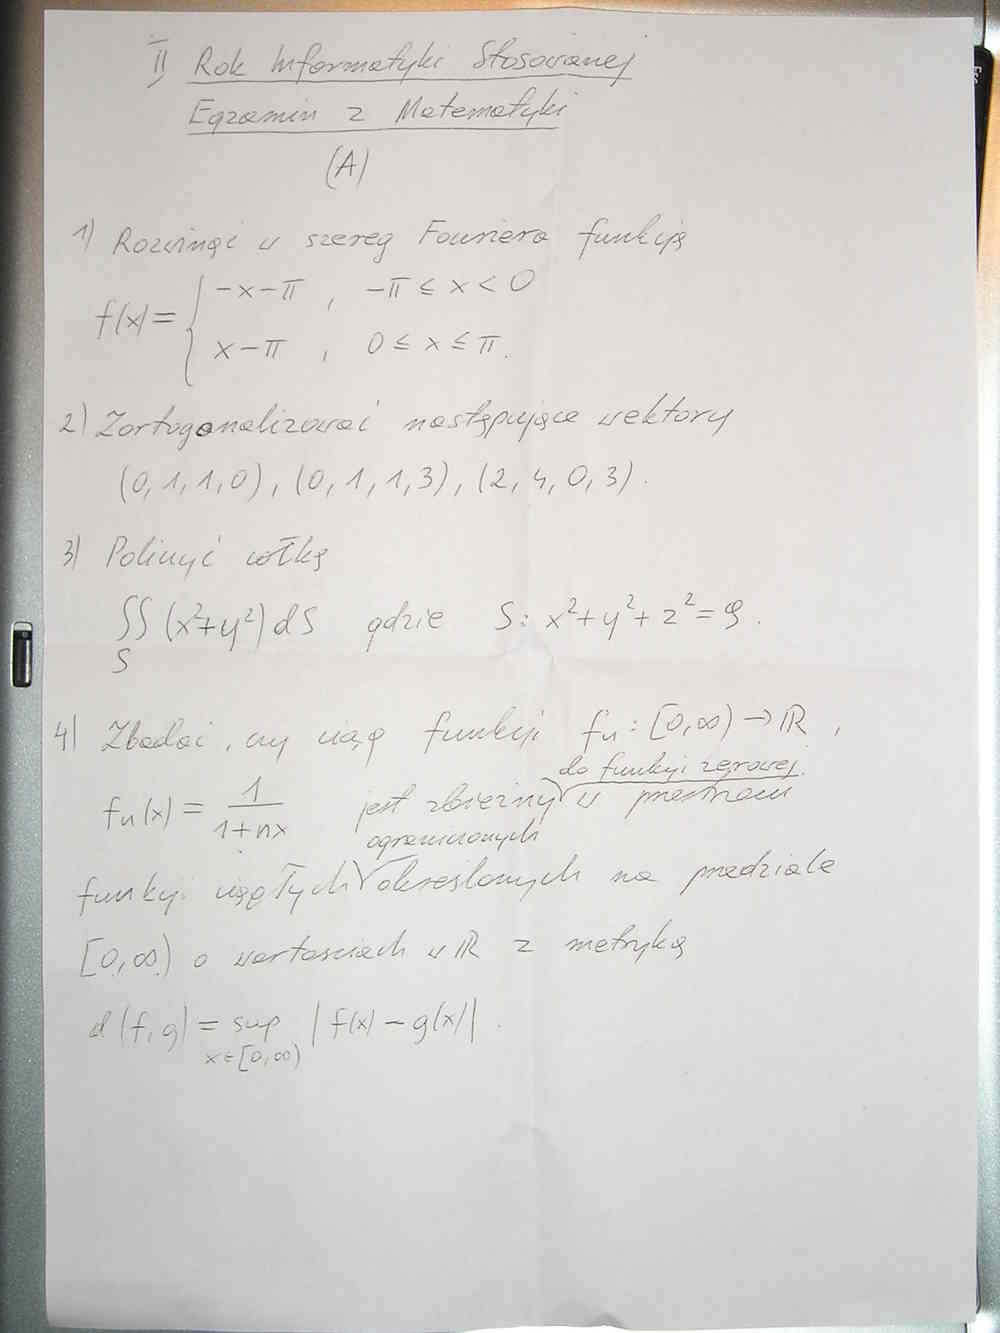 II Rok Informatyki Stosowanej
Egzamin z Matematyki
(A)
1) Rozwinąć w szereg Fouriera funkcję
f(x) = { -x-π , -π ≤ x < 0
x-π , 0 ≤ x ≤ π.
2) Zortogonalizować następujące wektory
(0,1,1,0), (0,1,1,3), (2,4,0,3).
3) Policzyć całkę
∬ (x²+y²) dS gdzie S: x²+y²+z²=9.
S
4) Zbadać, czy ciąg funkcji fn: [0,∞) → ℝ,
do funkcji zerowej
fn(x) = 1/(1+nx) jest zbieżny w przestrzeni
ograniczonych
funkcji ciągłych określonych na przedziale
[0,∞) o wartościach w ℝ z metryką
d(f,g) = sup |f(x) - g(x)|.
x∈[0,∞)